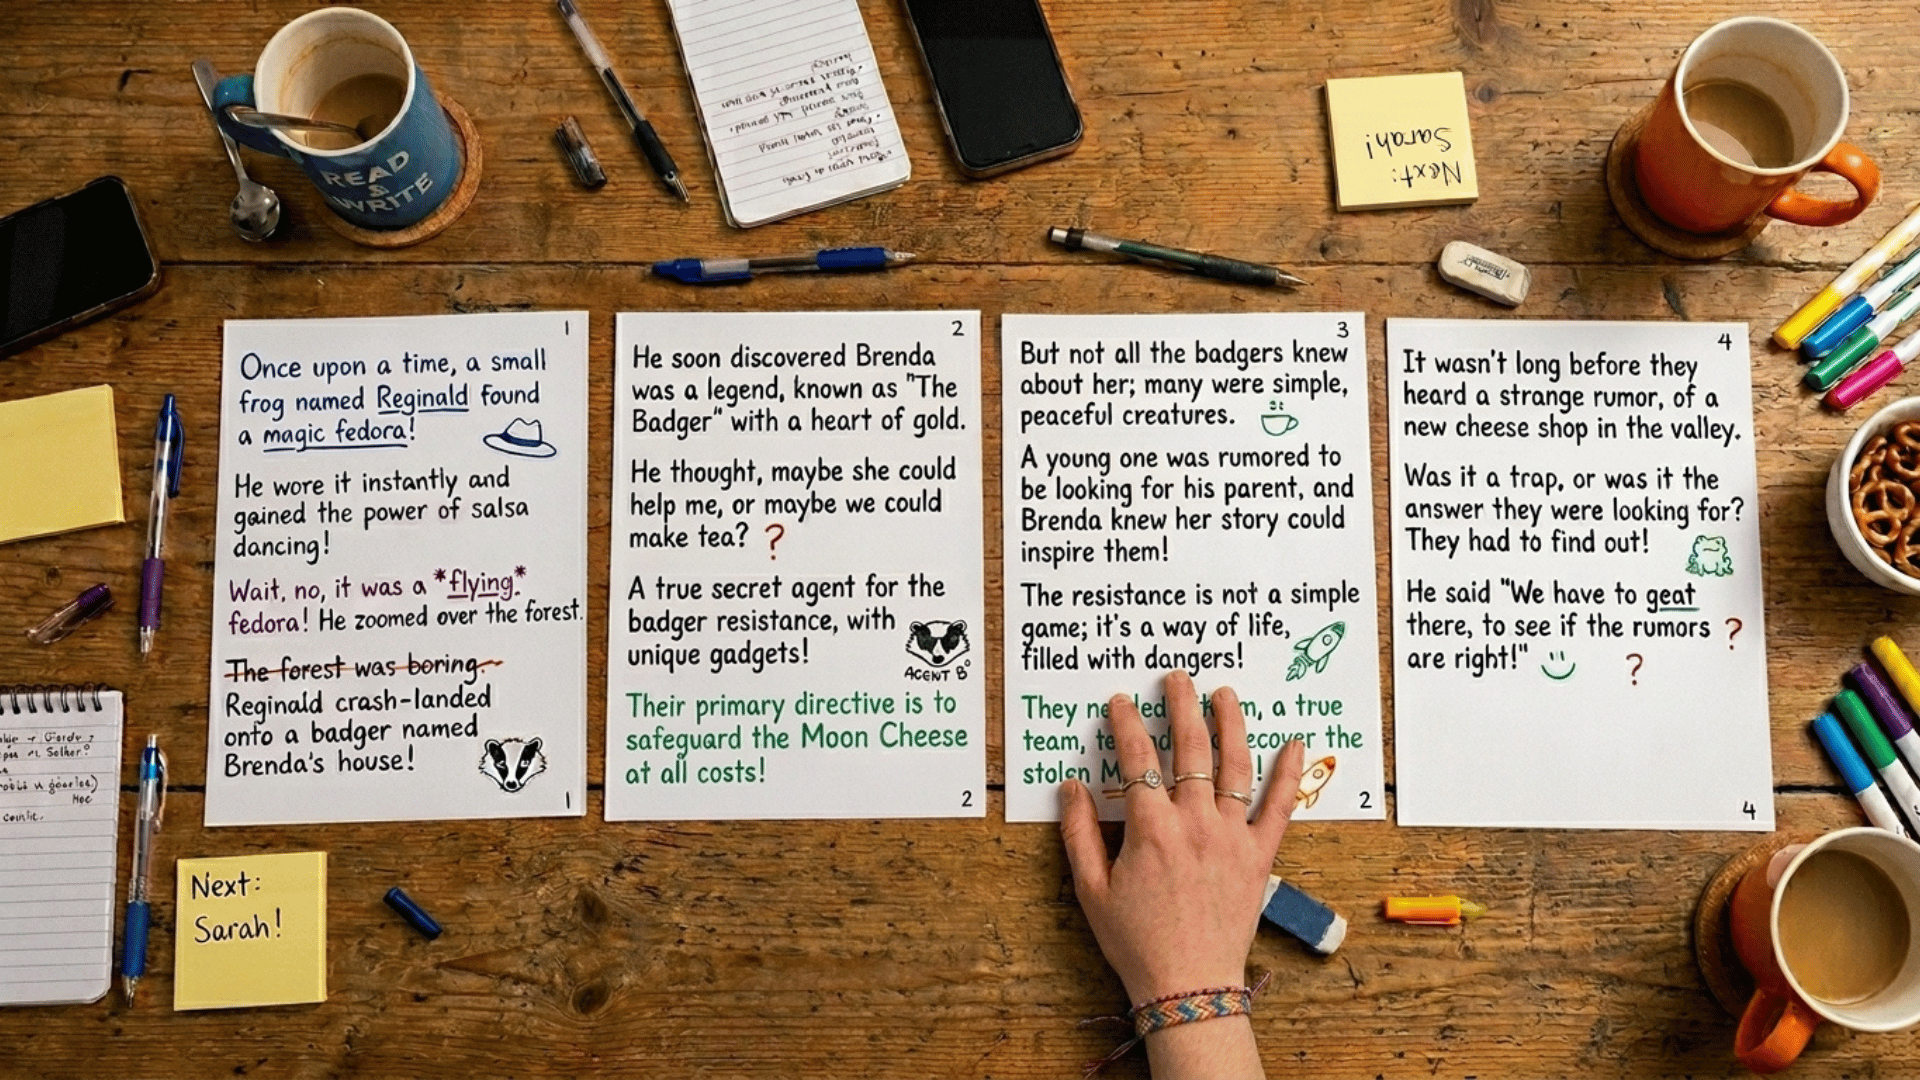 READ
&
WRITE
Next:
Sarah!
1
Once upon a time, a small
frog named Reginald found
a magic fedora!
He wore it instantly and
gained the power of salsa
dancing!
Wait, no, it was a *flying*
fedora! He zoomed over the forest.
The forest was boring.
Reginald crash-landed
onto a badger named
Brenda's house!
1
2
He soon discovered Brenda
was a legend, known as "The
Badger" with a heart of gold.
He thought, maybe she could
help me, or maybe we could
make tea? ?
A true secret agent for the
badger resistance, with
unique gadgets!
AGENT B
Their primary directive is to
safeguard the Moon Cheese
at all costs!
2
3
But not all the badgers knew
about her; many were simple,
peaceful creatures.
A young one was rumored to
be looking for his parent, and
Brenda knew her story could
inspire them!
The resistance is not a simple
game; it's a way of life,
filled with dangers!
They a true
team, the
stolen !
2
4
It wasn't long before they
heard a strange rumor, of a
new cheese shop in the valley.
Was it a trap, or was it the
answer they were looking for?
They had to find out!
He said "We have to geat
there, to see if the rumors ?
are right!" ?
4
Next:
Sarah!